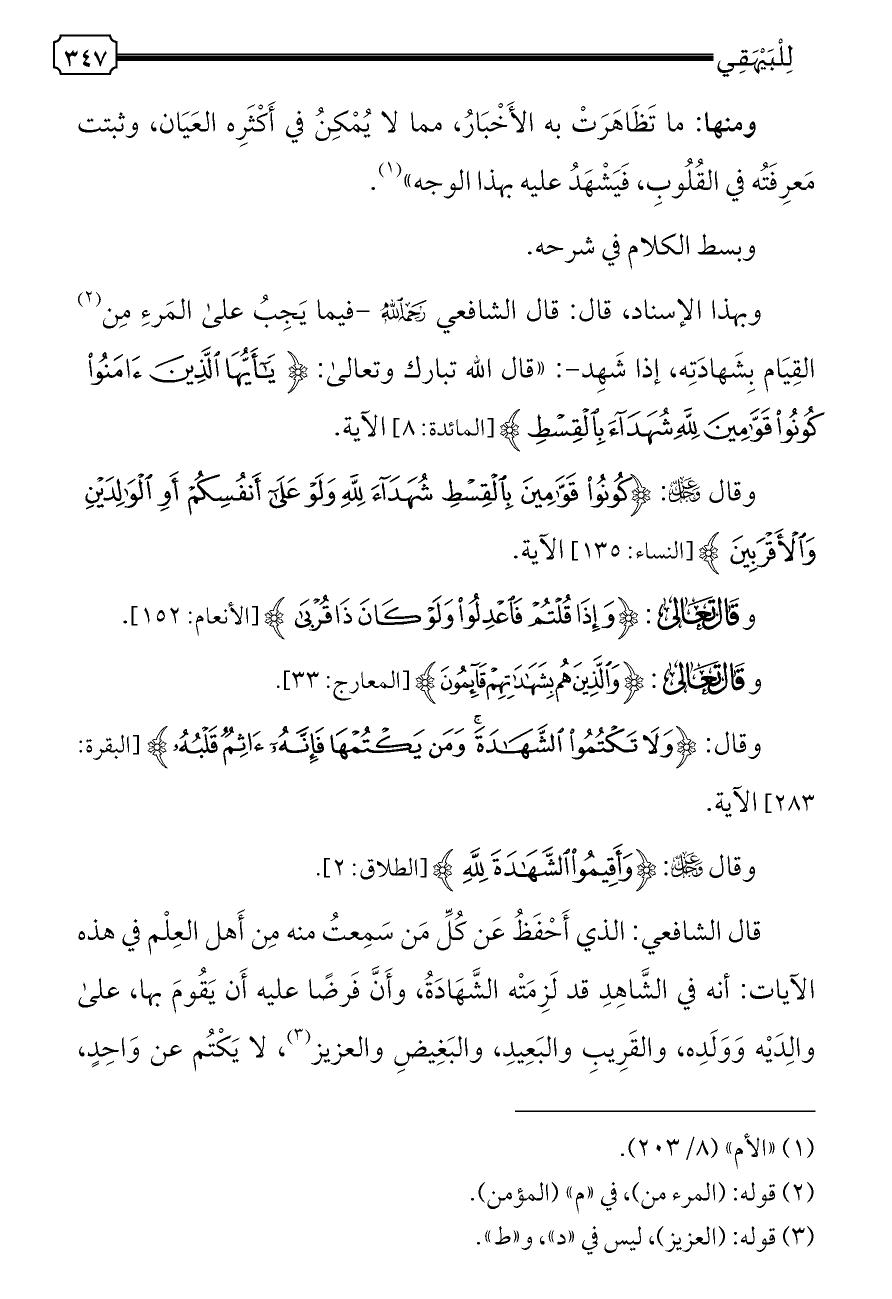 لِلْبَيْهَقِي ٣٤٧
ومنها: ما تَظَاهَرَتْ به الأَخْبَارُ، مما لا يُمْكِنُ في أَكْثَرِه العَيَان، وثبتت
مَعرِفَتُه في القُلُوبِ، فَيَشْهَدُ عليه بهذا الوجه»(١).
وبسط الكلام في شرحه.
وبهذا الإسناد، قال: قال الشافعي رَحِمَهُ اللَّهُ -فيما يَجِبُ علىٰ المَرءِ مِن(٢)
القِيَام بِشَهادَتِه، إذا شَهِد-: «قال الله تبارك وتعالىٰ: ﴿ يَٰٓأَيُّهَا ٱلَّذِينَ ءَامَنُوا۟
كُونُوا۟ قَوَّٰمِينَ لِلَّهِ شُهَدَآءَ بِٱلْقِسْطِ ﴾ [المائدة: ٨] الآية.
وقال عَزَّ وَجَلَّ: ﴿كُونُوا۟ قَوَّٰمِينَ بِٱلْقِسْطِ شُهَدَآءَ لِلَّهِ وَلَوْ عَلَىٰٓ أَنفُسِكُمْ أَوِ ٱلْوَٰلِدَيْنِ
وَٱلْأَقْرَبِينَ ﴾ [النساء: ١٣٥] الآية.
و قَالَ تَعَالَىٰ: ﴿وَإِذَا قُلْتُمْ فَٱعْدِلُوا۟ وَلَوْ كَانَ ذَا قُرْبَىٰ ﴾ [الأنعام: ١٥٢].
و قَالَ تَعَالَىٰ: ﴿وَٱلَّذِينَ هُم بِشَهَٰدَٰتِهِمْ قَآئِمُونَ﴾ [المعارج: ٣٣].
وقال: ﴿وَلَا تَكْتُمُوا۟ ٱلشَّهَٰدَةَ ۚ وَمَن يَكْتُمْهَا فَإِنَّهُۥٓ ءَاثِمٌ قَلْبُهُۥ ﴾ [البقرة:
٢٨٣] الآية.
وقال عَزَّ وَجَلَّ: ﴿وَأَقِيمُوا۟ ٱلشَّهَٰدَةَ لِلَّهِ ﴾ [الطلاق: ٢].
قال الشافعي: الذي أَحْفَظُ عَن كُلِّ مَن سَمِعتُ منه مِن أَهل العِلْم في هذه
الآيات: أنه في الشَّاهِدِ قد لَزِمَتْه الشَّهَادَةُ، وأَنَّ فَرضًا عليه أَن يَقُومَ بها، علىٰ
والِدَيْه وَوَلَدِه، والقَرِيبِ والبَعِيدِ، والبَغِيضِ والعزيز(٣)، لا يَكْتُم عن وَاحِدٍ،
(١) «الأم» (٨/ ٢٠٣).
(٢) قوله: (المرء من)، في «م» (المؤمن).
(٣) قوله: (العزيز)، ليس في «د»، و«ط».